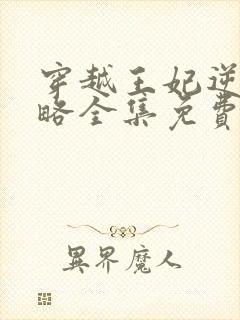 穿越王妃逆
略全集免費
異界魔人